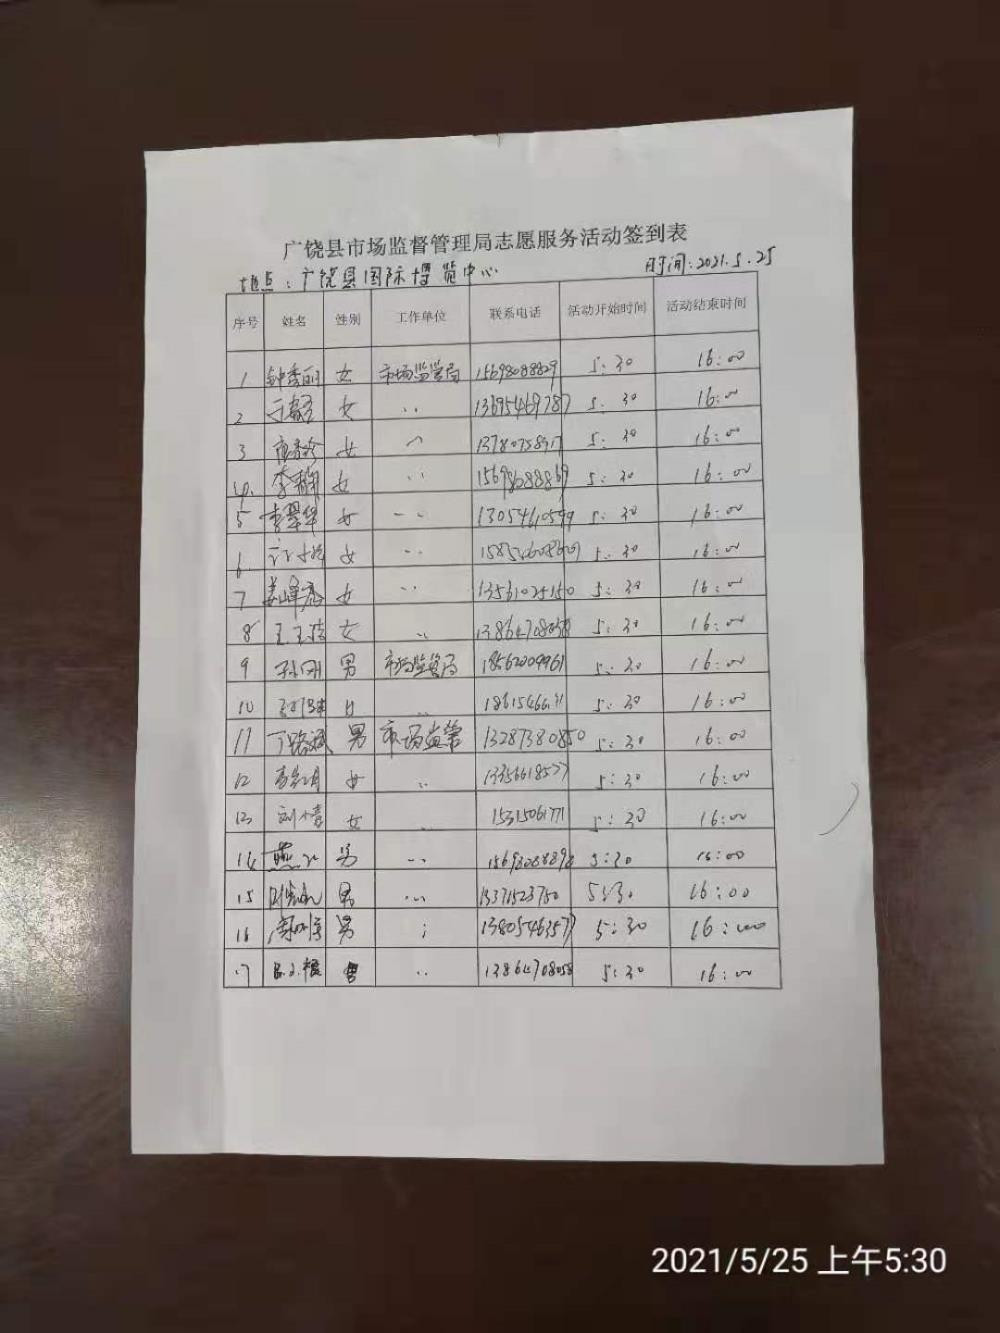 广饶县市场监督管理局志愿服务活动签到表
地点：广饶县国际博览中心 时间:2021.5.25
序号 姓名 性别 工作单位 联系电话 活动开始时间 活动结束时间
1 钟秀丽 女 市场监管局 15698088829 5:30 16:00
2 女 〃 13695469787 5:30 16:00
3 女 〃 5:30 16:00
4. 李静 女 〃 15698088869 5:30 16:00
5 李翠华 女 〃 13054610599 5:30 16:00
6 女 〃 5:30 16:00
7 女 〃 13561025150 5:30 16:00
8 王玉洁 女 〃 13864708058 5:30 16:00
9 孙刚 男 市场监管局 18562009961 5:30 16:00
10 〃 5:30 16:00
11 丁路斌 男 市场监管 13287380850 5:30 16:00
12 女 〃 5:30 16:00
13 女 〃 5:30 16:00
14 男 〃 15698088898 5:30 16:00
15 男 〃 5:30 16:00
16 男 〃 13805463577 5:30 16:00
17 〃 13864708058 5:30 16:00
2021/5/25 上午5:30